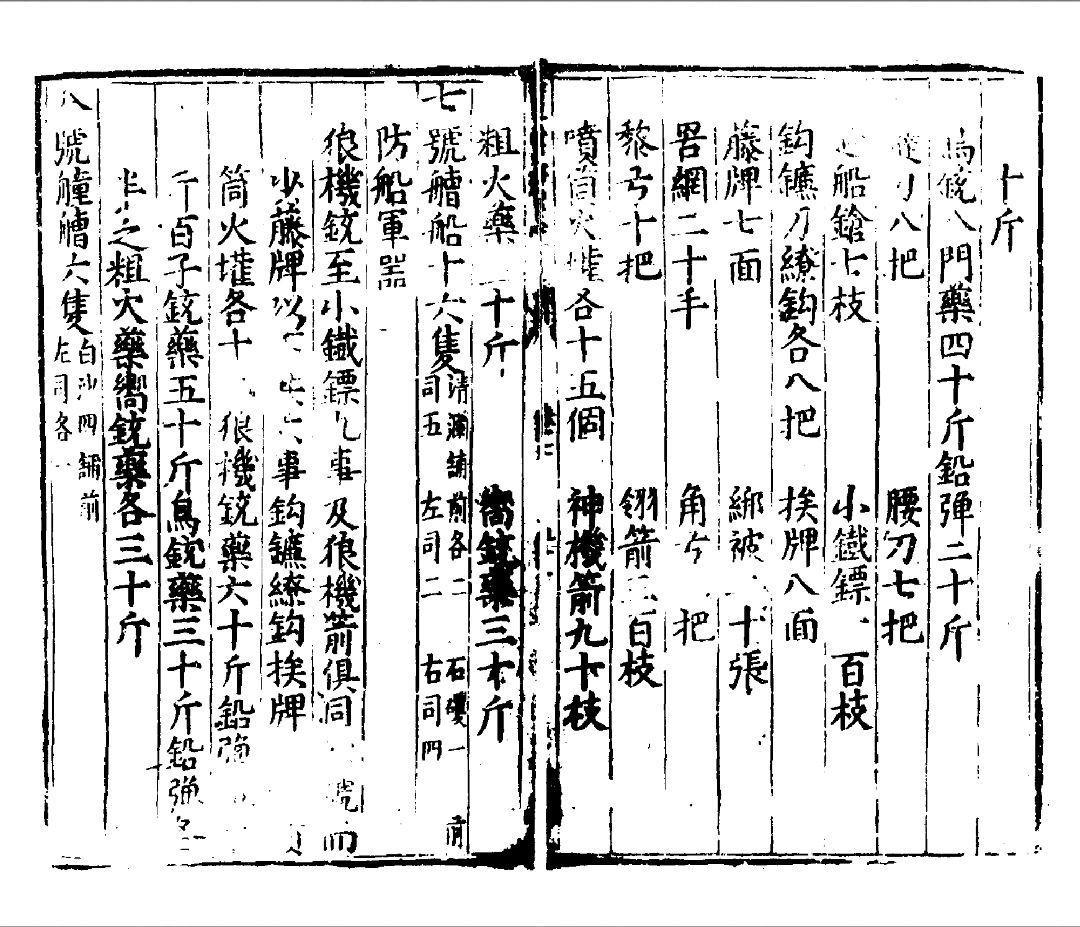 十斤
銃八門藥四十斤鉛彈二十斤
刀八把 腰刀七把
船鎗七枝 小鐵鏢 百枝
鈎鐮刀繚鈎各八把 挨牌八面
藤牌七面 綁被 十張
罟網二十手 角弓 把
黎弓十把 翎箭 百枝
噴筒火礶各十五個 神機箭九十枝
粗火藥 二十斤 嚮銃藥三十斤
七號艚船十六隻 清瀾舖前各二 石礶一 前
司五 左司二 右司四
防船軍器
狼機銃至小鐵鏢九事及狼機箭俱同 號而
少藤牌以 事鈎鐮繚鈎挨牌
筒火礶各十 狼機銃藥六十斤鉛彈
斤百子銃藥五十斤鳥銃藥三十斤鉛彈各
半之粗火藥嚮銃藥各三十斤
八號艟艚六隻 白沙四舖前
左司各一